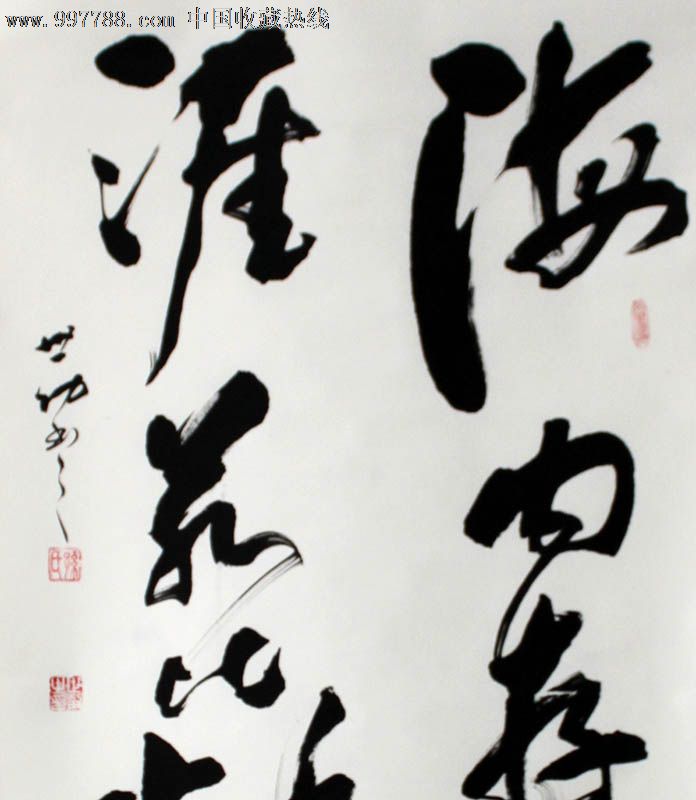 www.997788.com 中国收藏热线
海内存
涯若比
世功书之